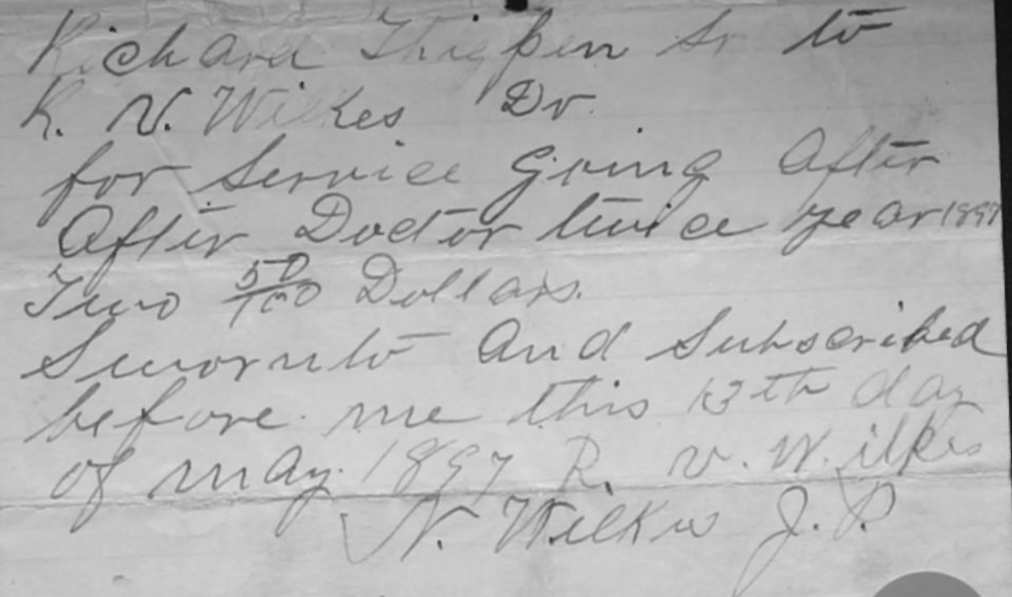 Richard Thigpen Sr to
R. V. Wilkes Dr.
for Service Going After
After Doctor twice year 1897
Two 50/100 Dollars.
Swornto And Subscribed
before me this 13th day
of May. 1897 R. V. Wilkes
N. Wilkes J. P.